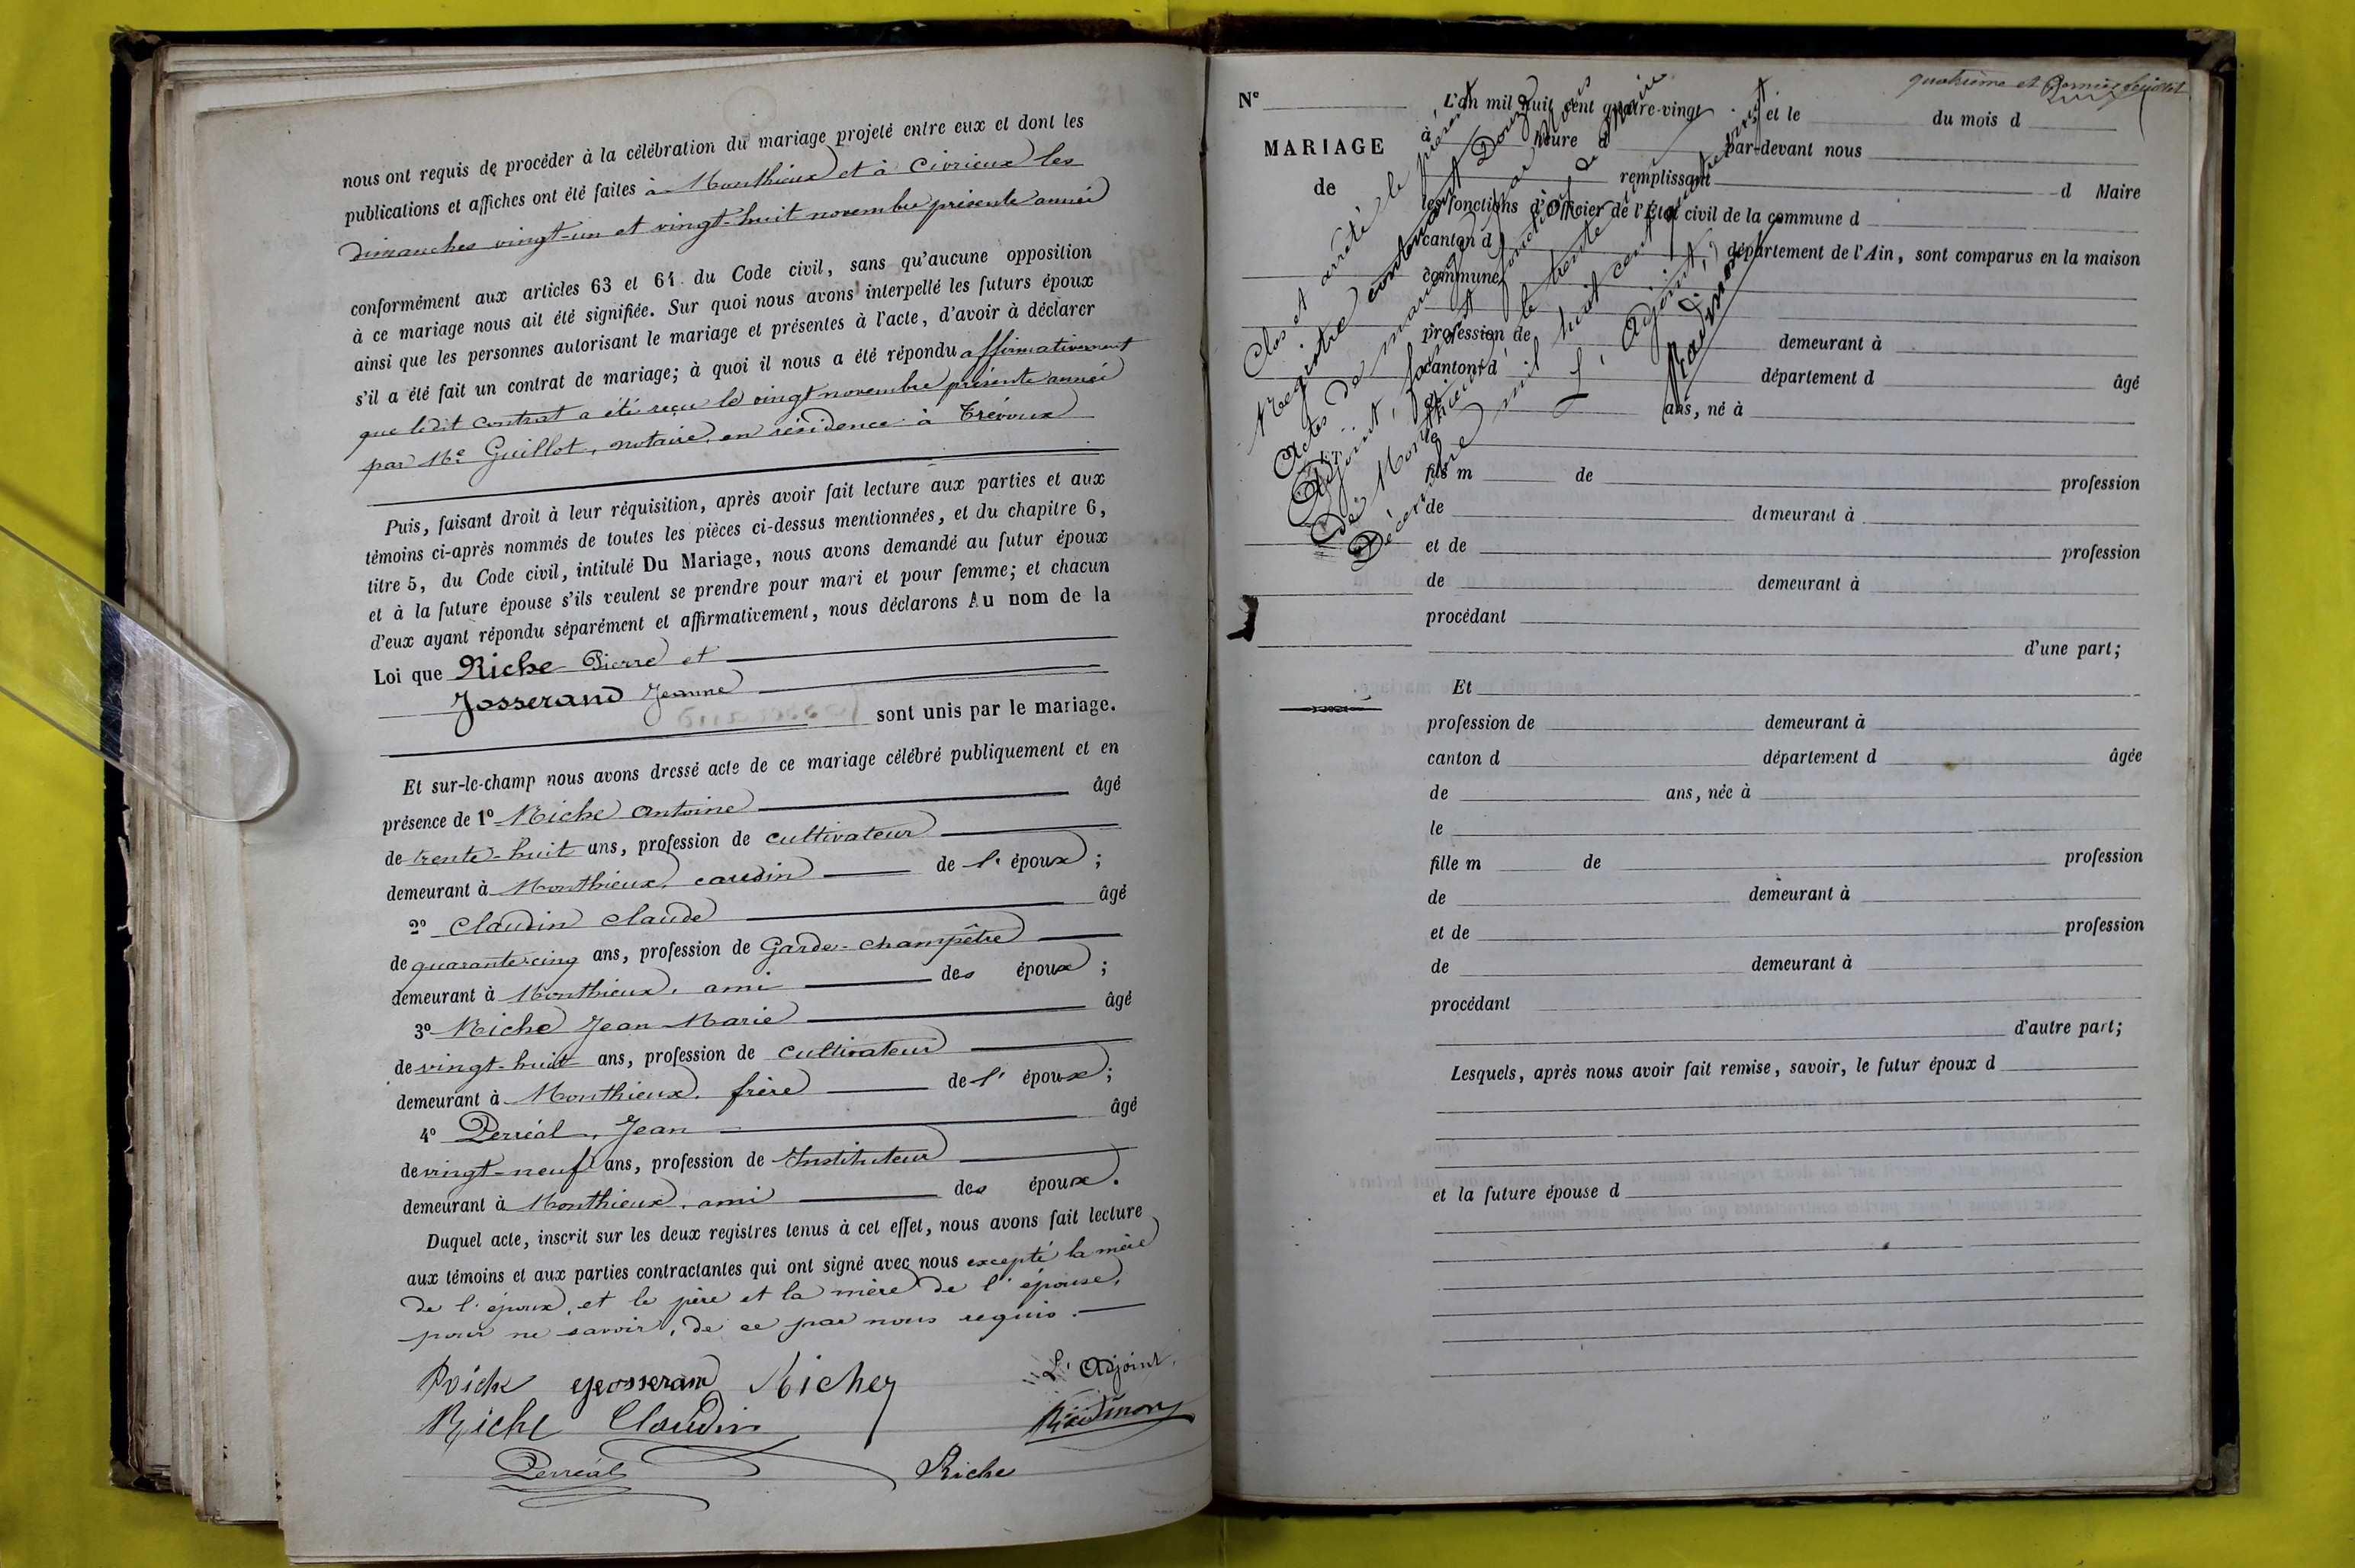 nous ont requis de procéder à la célébration du mariage projeté entre eux et dont les
publications et affiches ont été faites à Monthieux et à Civrieux les
Dimanches vingt-un et vingt-huit novembre présente année
conformément aux articles 63 et 64 du Code civil, sans qu'aucune opposition
à ce mariage nous ait été signifiée. Sur quoi nous avons interpellé les futurs époux
ainsi que les personnes autorisant le mariage et présentes à l'acte, d'avoir à déclarer
s'il a été fait un contrat de mariage; à quoi il nous a été répondu affirmativement
que ledit contrat a été reçu le vingt novembre présente année
par Me Guillot, notaire, en résidence à Trévoux
Puis, faisant droit à leur réquisition, après avoir fait lecture aux parties et aux
témoins ci-après nommés de toutes les pièces ci-dessus mentionnées, et du chapitre 6,
titre 5, du Code civil, intitulé Du Mariage, nous avons demandé au futur époux
et à la future épouse s'ils veulent se prendre pour mari et pour femme; et chacun
d'eux ayant répondu séparément et affirmativement, nous déclarons Au nom de la
Loi que Riche Pierre et
Josserand Jeanne
sont unis par le mariage.
Et sur-le-champ nous avons dressé acte de ce mariage célébré publiquement et en
présence de 1° Riche Antoine âgé
de trente-huit ans, profession de cultivateur
demeurant à Monthieux, cousin de l'époux ;
2° Claudin Claude âgé
de quarante-cinq ans, profession de Garde-champêtre
demeurant à Monthieux, ami des époux ;
3° Riche Jean Marie âgé
de vingt-huit ans, profession de cultivateur
demeurant à Monthieux, frère de l'époux ;
4° Perréal, Jean âgé
de vingt-neuf ans, profession de Instituteur
demeurant à Monthieux, ami des époux.
Duquel acte, inscrit sur les deux registres tenus à cet effet, nous avons fait lecture
aux témoins et aux parties contractantes qui ont signé avec nous excepté la mère
de l'époux, et le père et la mère de l'épouse,
pour ne savoir, de ce par nous requis.
L'Adjoint,
Riche Claudin
Perréal Riche
quatrième et dernier feuillet
N° L'an mil huit cent quatre-vingt et le du mois d
à heure d par-devant nous
MARIAGE
de
remplissant d Maire
les fonctions d'Officier de l'État civil de la commune d
canton d département de l'Ain, sont comparus en la maison
commune
profession de demeurant à
canton d département d âgé
de ans, né à
le
fils m de profession
de demeurant à
et de profession
de demeurant à
procédant
d'une part;
Et
profession de demeurant à
canton d département d âgée
de ans, née à
le
fille m de profession
de demeurant à
et de profession
de demeurant à
procédant
d'autre part;
Lesquels, après nous avoir fait remise, savoir, le futur époux d
et la future épouse d
Clos et arrêté le présent
Registre contenant Douze
Actes de mariage par Nous
Adjoint, faisant fonctions de Maire
De Monthieux, le trente et un
Décembre mil huit cent quatre-vingt
L'Adjoint,